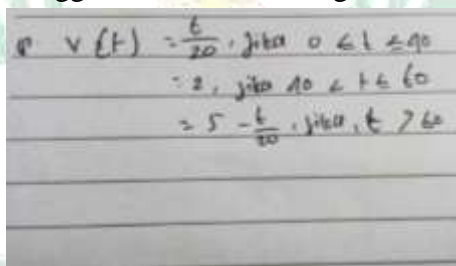 V(t) = t/20, jika 0 ≤ t ≤ 40
= 2, jika 40 < t ≤ 60
= 5 - t/20, jika, t > 60